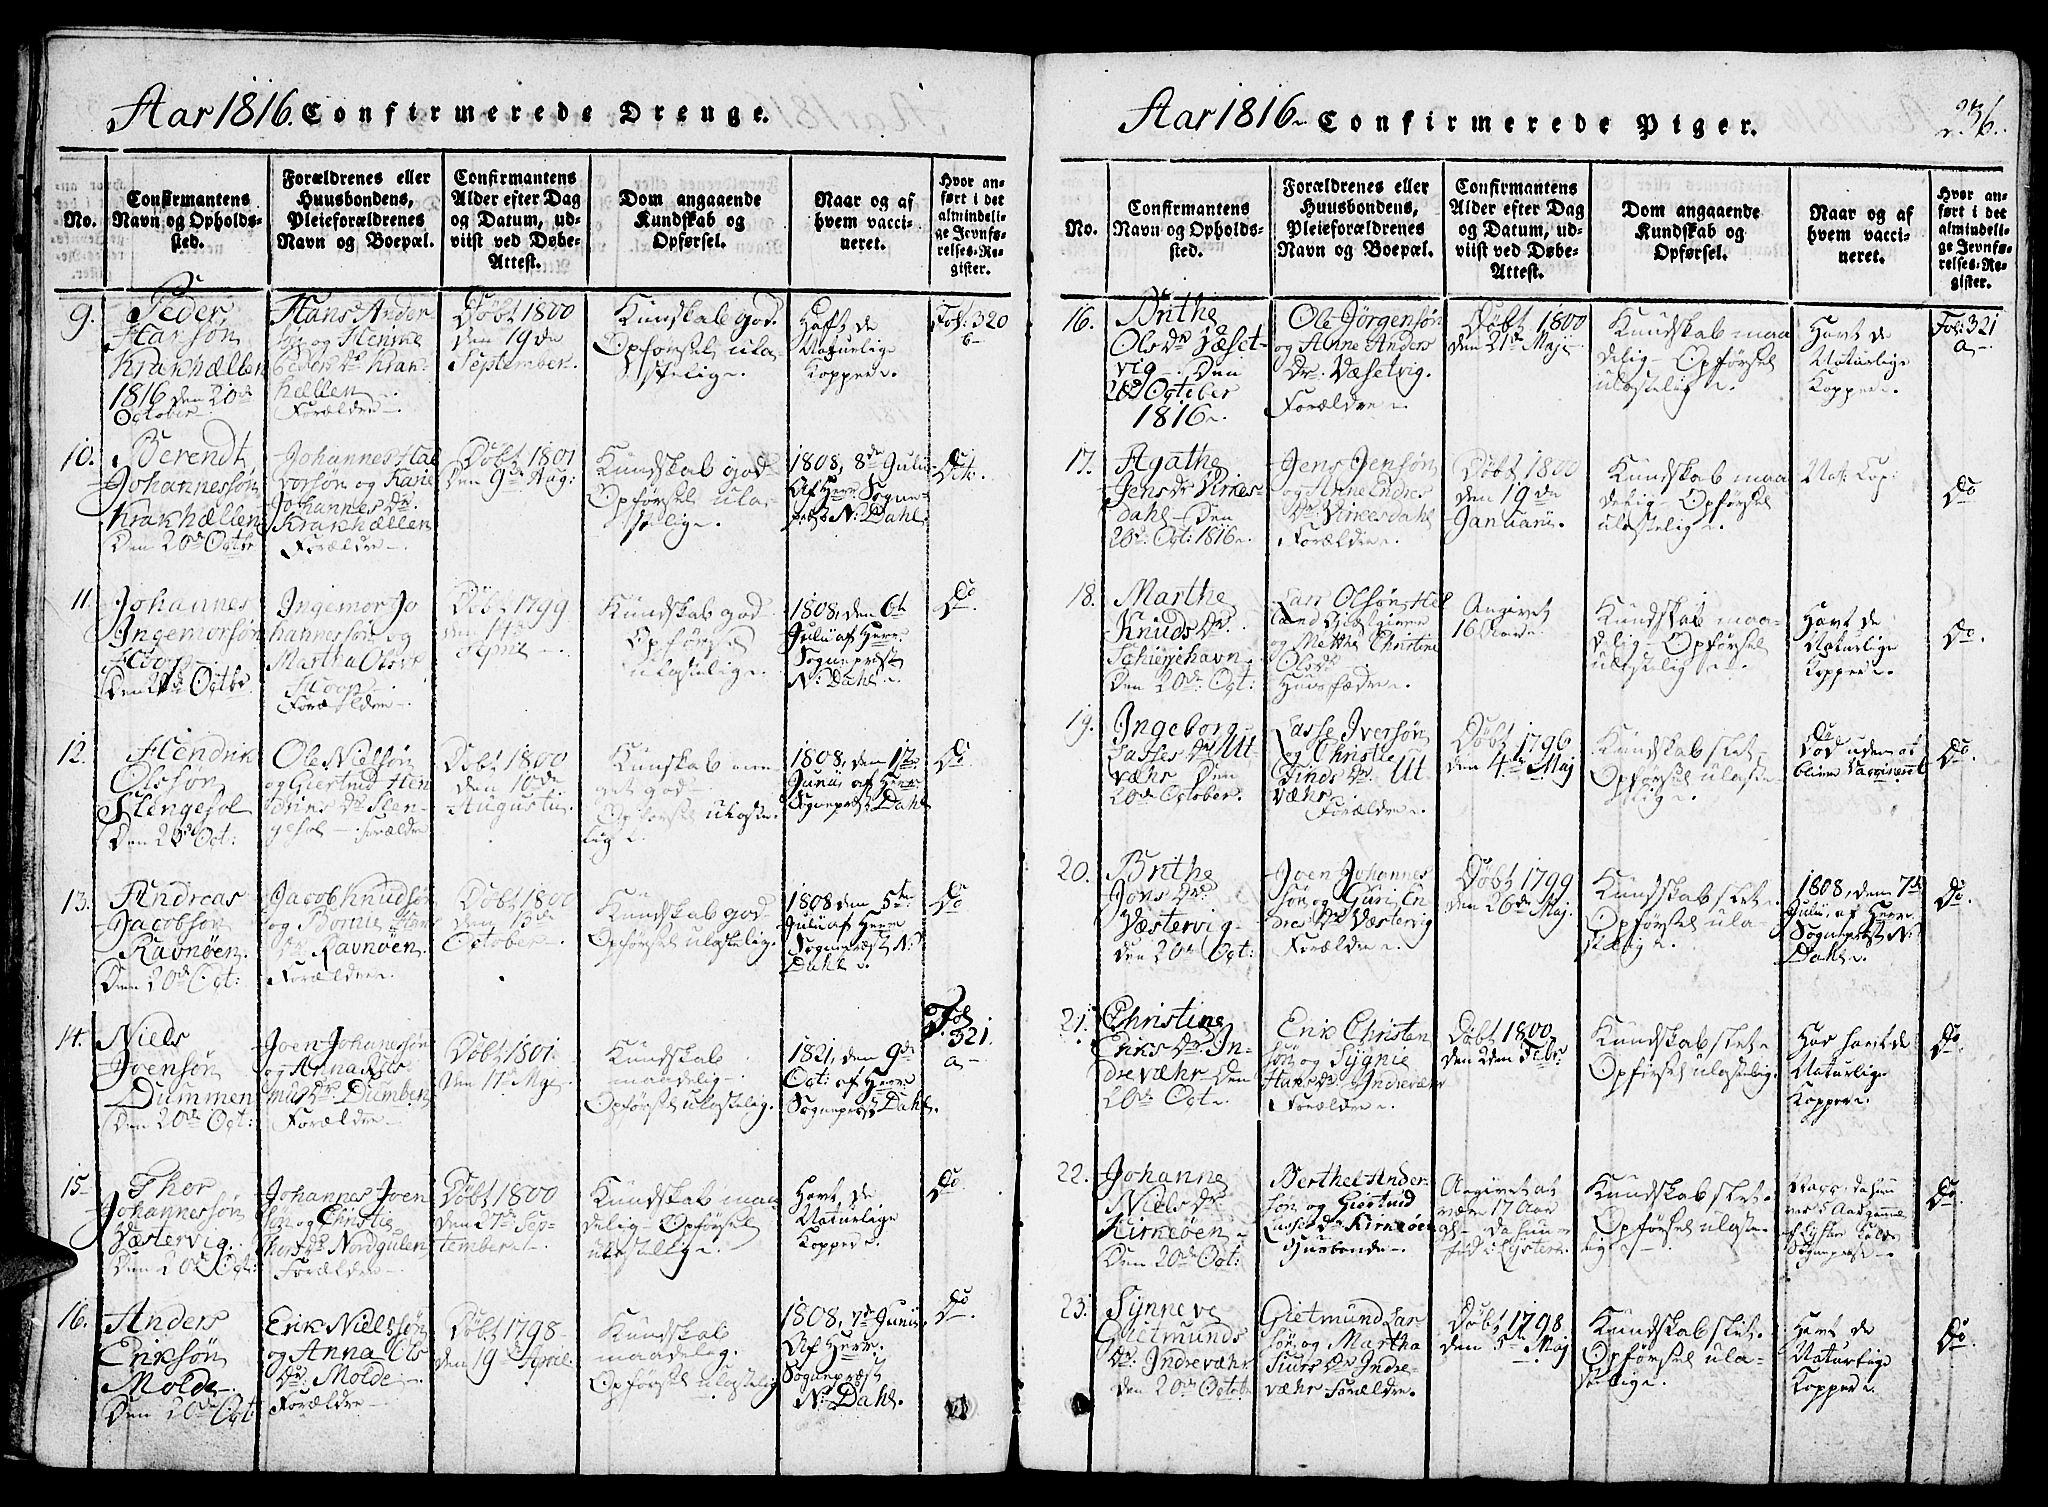 Aar 1816. Confirmerede Drenge.
No.
Confirmantens
Navn og Opholds-
sted.
Forældrenes eller
Huusbondens,
Pleieforældrenes
Navn og Boepæl.
Confirmantens
Alder efter Dag
og Datum, ud-
viist ved Døbe-
Attest.
Dom angaaende
Kundskab og
Opførsel.
Naar og af
hvem vacci-
neret.
Hvor an-
ført i det
almindeli-
ge Jevnfø-
relses-Re-
gister.
9.
Peder
Hansøn
Krakhællen
1816 den 20de
October
Hans Ander
søn og
Peders Dr. Krak
hællen
Forældre
Døbt 1800
den 19de
September
Kundskab god.
Opførsel ula-
stelig
Haft de
Naturlige
Kopper
Fol: 320
b
10.
Berendt
Johannessøn
Krakhællen
Den 20de Octbr
Johannes Hal
vorsøn og Karie
Johannes Dr.
Krakhællen
Forældre
Døbt 1801
Den 9de Aug:
Kundskab god
Opførsel ula-
stelig
1808, 8de Julii
Af Herr Sogne-
præst N: Dahl
Dit:
11.
Johannes
Ingemorsøn
Den 20de Octbr
Ingemor Jo
hannessøn og
Martha Olsdr
Forældre
Døbt 1799
den
April
Kundskab god
Opførsel
ulastelig
1808, den 6te
Julii af Herr
Sognepræst
N: Dahl
Do
12.
Hendrik
Olssøn
Stengesol
Den 20de Oct:
Ole Nielsøn
og Giertrud Hen
driks Dr. Sten-
gesol Forældre
Døbt 1800
den 10de
Augustii
Kundskab me-
get god
Opførsel ulaste-
lig
1808, den
Junii, af Herr
Sognepræst Dahl
Do
13.
Andreas
Jacobsøn
Ravnøen
Den 20de Oct:
Jacob Knudsøn
og
Dr. Ravnøen
Forældre
Døbt 1800
den
October
Kundskab god
Opførsel ulastelig.
1808 den 5te
Julii af Herr
Sognepræst N:
Dahl
Do
14.
Niels
Joensøn
Dummen
Den 20de Oct:
Joen Johanessøn
og Anna Ras
mus Dr. Dumben
Forældre
Døbt 1801.
den
Kundskab
maadelig
Opførsel ulastelig.
1821, den 9de
Oct: af Herr
Sognepræst Dahl.
Fol
321.
a
15
Thor
Johannessøn
Væstervig.
Den 20de Oct:
Johannes Joen
søn og Christie
Thors Dr. Nordgulen
Forældre
Døbt 1800
den 27de Sep-
tember
Kundskab maa-
delig Opførsel
ulastelig
Havt de
Naturlige
Kopper
Do
16.
Anders
Eriksøn
Molde
Den 20de Oct:
Erik Nielssøn
og Anna Ols
Dr. Molde
Forældre
Døbt 1798
den 19de April
Kundskab
maadelig.
Opførsel ulastelig
1808, 7de Junii
Af Herr
Sognepræst
N: Dahl.
Do
Aar 1816 Confirmerede Piger.
236.
No.
Confirmantens
Navn og Opholds-
sted.
Forældrenes eller
Huusbondens,
Pleieforældrenes
Navn og Boepæl.
Confirmantens
Alder efter Dag
og Datum, ud-
viist ved Døbe-
Attest.
Dom angaaende
Kundskab og
Opførsel.
Naar og af
hvem vacci-
neret.
Hvor an-
ført i det
almindeli-
ge Jevnfø-
relses-Re-
gister.
16.
Brithe
Ols Dr Væset-
vig Den
20de October
1816
Ole Jörgensøn
og Anne Anders
Dr. Væsetvig.
Forældre
Døbt 1800
den 21de Maji
Kundskab maa
delig Opførsel
ulastelig
Havt de
Naturlige
Kopper
Fol: 321
a
17.
Agathe
Jens Dr Virkes-
dahl Den
20de Oct: 1816
Jens Jensøn
og Anne Endres
Dr. Virkesdahl
Forældre
Døbt 1800
den 19de
Januarii
Kundskab maa
delig Opførsel
ulastelig
Nat: Cop:
Do
18.
Marthe
Knuds Dr.
Schierjehavn
Den 20de Oct:
Lars Olsøn
og Mette Christine
Ols Dr
Huusfædre
Angivet
16 Aar
Kundskab maa-
delig Opførsel
ulastelig
Havt de
Naturlige
Kopper
Do
19.
Ingeborg
Lasses Dr Ut
væhr Den
20de October.
Lasse Iversøn
og Christie
Finds Dr. Ut
væhr
Forældre
Døbt 1796
den 4de Maj
Kundskab slet
Opførsel ulaste
lig
Do
Død uden at
blive Vaccineret
Do
20.
Brithe
Jons Dr.
Væstervig
den 20de Oct:
Joen Johannes
søn og Guri En
dres Dr Væstervig
Forældre
Døbt 1799
den 26de Maj.
Kundskab slet.
Opførsel ula-
stelig
1808, den 7de
Julii, af Herr
Sognepræst N:
Dahl
Do
21.
Christine
Eriks Dr. In-
dre væhr den
20de Oct
Erik Christen
søn og Sygnie
Hans Dr Indrevæhr
Forældre
Døbt 1800
den 2den Febr
Kundskab slet
Opførsel ulastelig.
Har havt de
Naturlige
Kopper
Do
22.
Johanne
Niels Dr
Kirkeøen
Den 20de Oct:
Berthel Ander-
søn og Giørtrud
Lasse Dr Kirkeøen
Huusbonde
Angivet at
være 17 Aar
Kundskab slet.
Opførsel ulaste-
lig
Vacc: da hun
var 5 Aar gammel
Sognepræst
Do.
23.
Synneve
Gietmunds
Dr. Indrevæhr
den 20de October
Gietmund Lar
søn og Martha
Siurs Dr Indre-
væhr Forældre
Døbt 1798
den 5te Maj
Kundskab slet
Opførsel ula-
stelig
Havt de
Naturlige
Kopper
Do